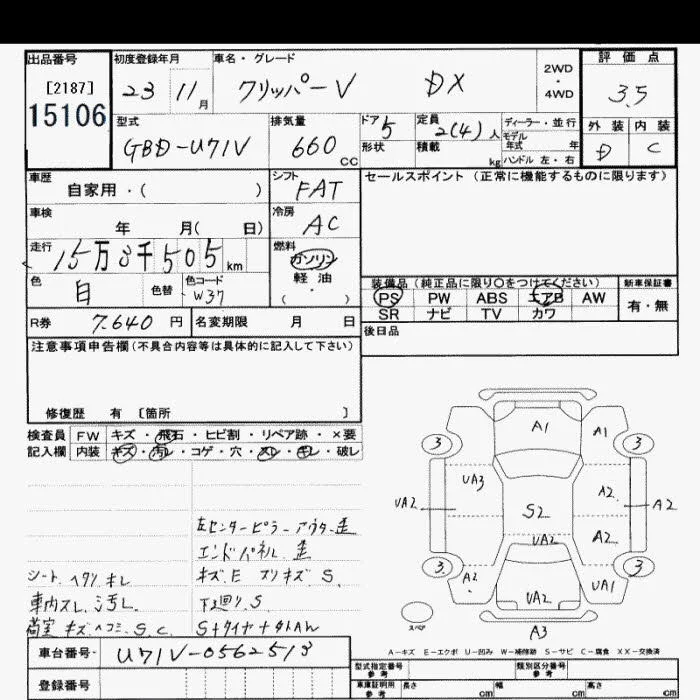 出品番号 初度登録年月 車名・グレード 2WD・4WD 評価点
[2187] 23 11月 クリッパーV DX 3.5
15106
型式 排気量 ドア 定員 ディーラー・並行 外装 内装
GBD-U71V 660cc 5 2(4)人 モデル年式 年 D C
形状 積載 kg ハンドル 左・右
車歴 自家用・( ) シフト FAT セールスポイント(正常に機能するものに限ります)
車検 年 月( 日) 冷房 AC
走行 15万8千505km 燃料 ガソリン
軽油
・( )
色 白 色替 色コード W37 装備品(純正品に限り○をつけてください) 新車保証書
PS PW ABS エアB AW 有・無
SR ナビ TV カワ
R券 7.640円 名変期限 月 日 後日品
注意事項申告欄(不具合内容等は具体的に記入して下さい)
修復歴 有 [箇所 ]
検査員 FW キズ・飛石・ヒビ割・リペア跡・×要
記入欄 内装 キズ・汚レ・コゲ・穴・スレ・キレ・破レ
A1 A1
3 3
UA3 A2
UA2 S2 A2
UA2 A2
3 3
A2 UA2 UA1
A3
スペア
左センターピラーアウター歪
エンドパネル歪
シート ヘタリ キレ キズ.E スリキズ S.
車内スレ 汚レ 下廻り.S.
荷室 キズ ヘコミ S.C.
A-キズ E-エクボ U-凹み W-補修跡 S-サビ C-腐食 XX-交換済
車台番号 U71V-0562513
登録番号
型式指定番号 参考 類別区分番号 参考
車庫証明用 参考 長さ cm 幅 cm 高さ cm